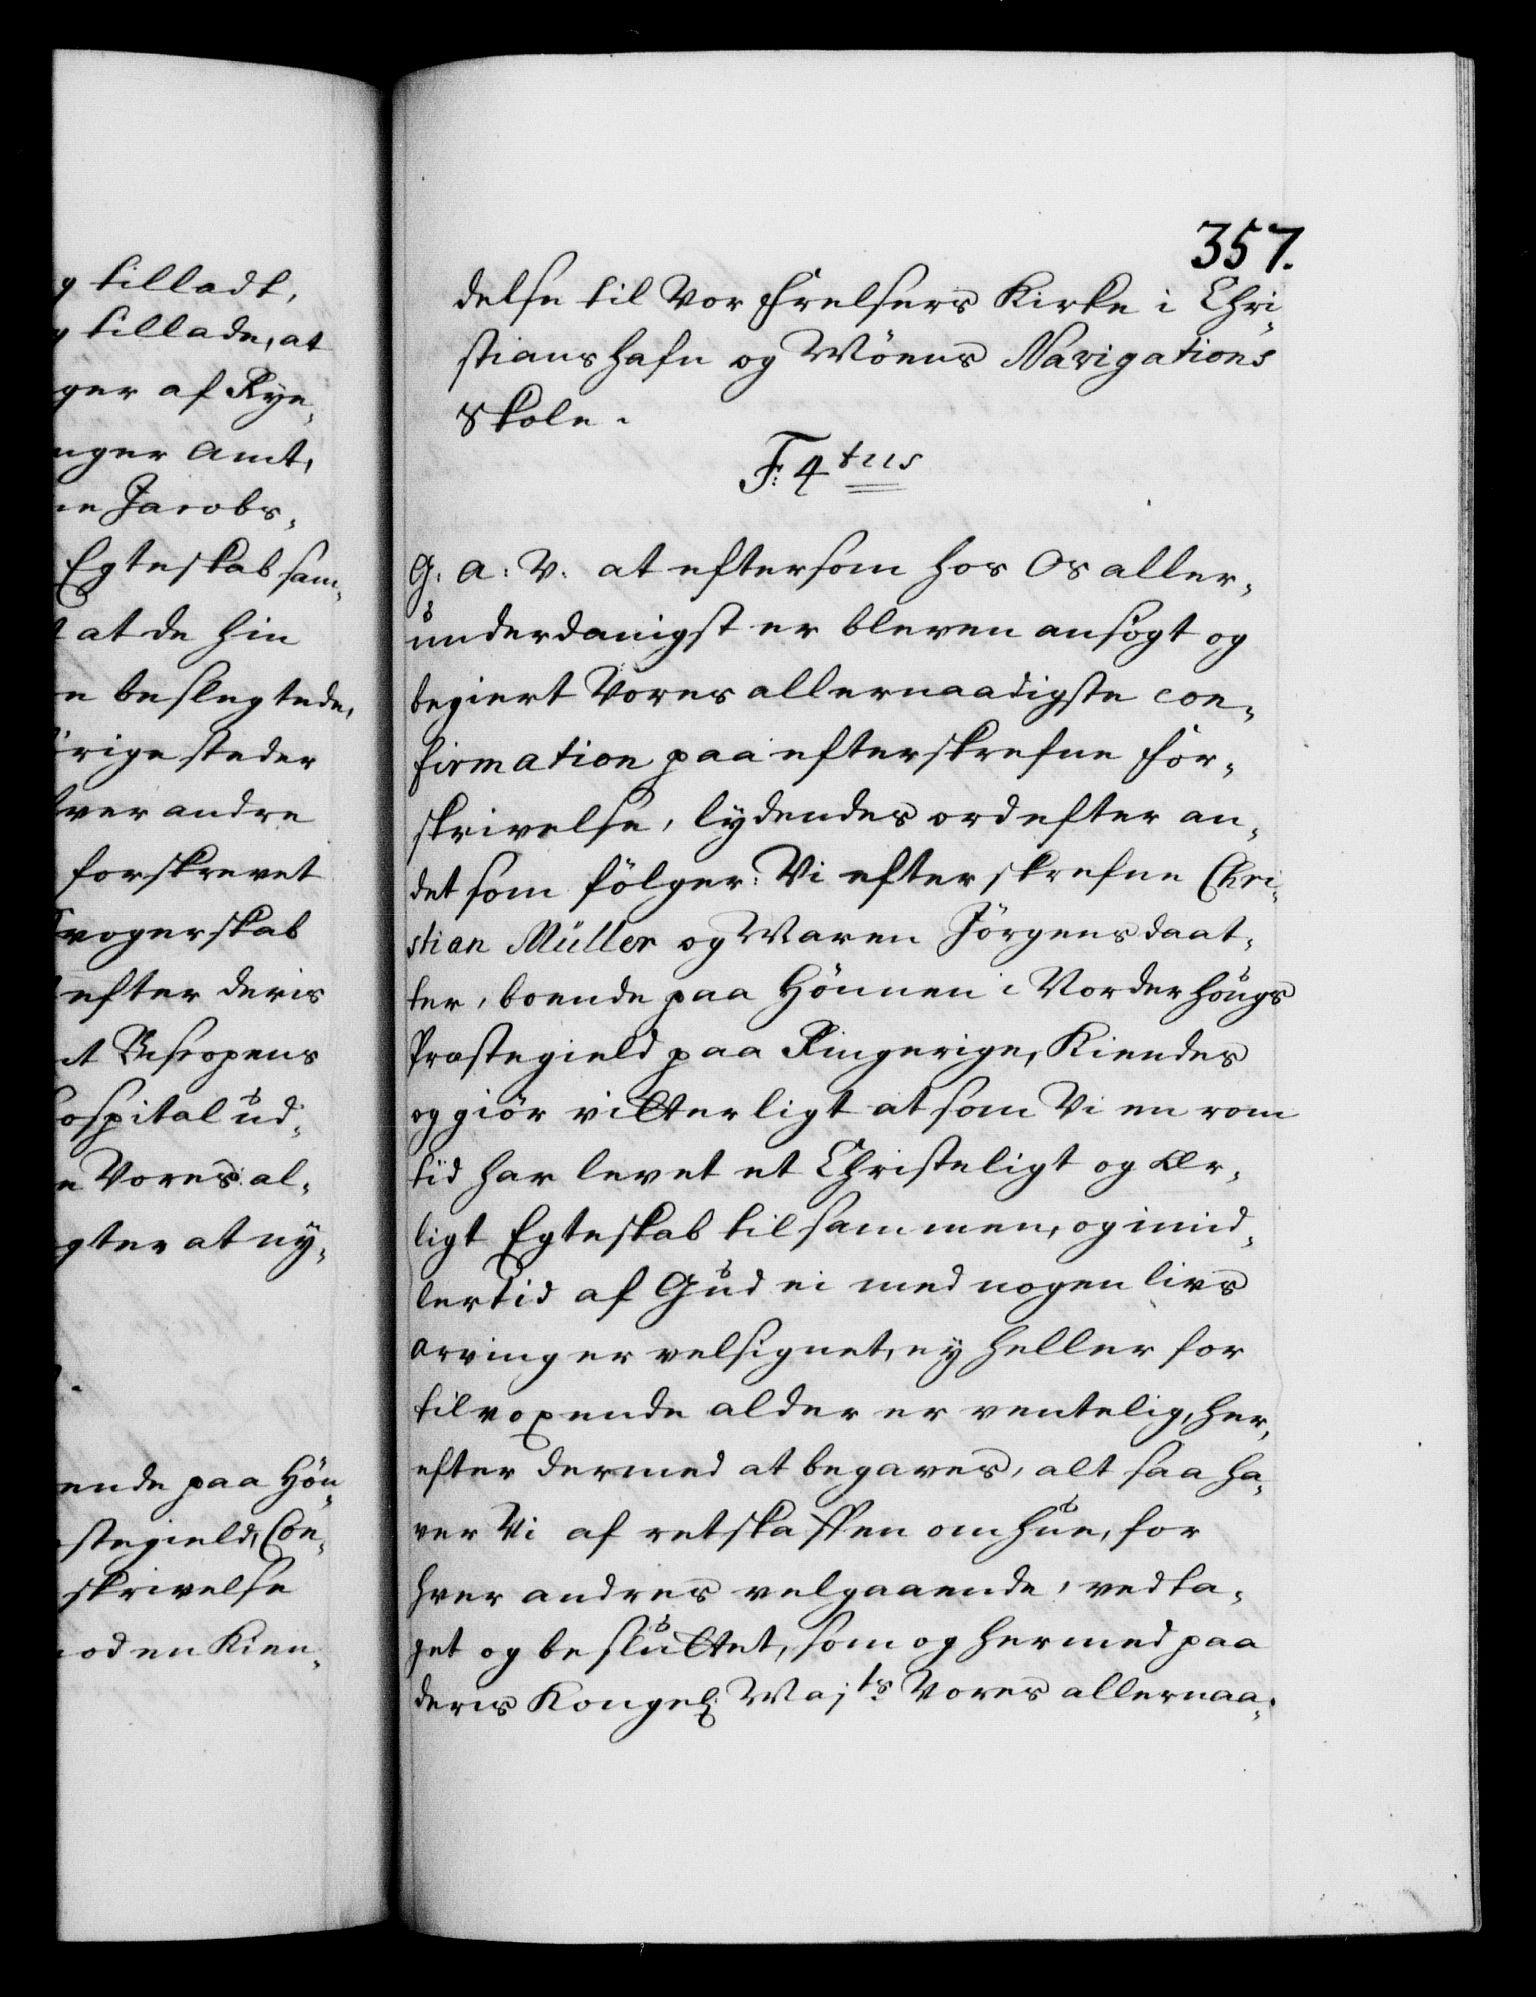 g tilladt,
g tillade, at
ger af Rye-
nger Amt,
ne Jacobs-
Egteskab sam-
t at de hin
n beslegtede,
örige steder
hver andre
forskrevet
Svogerskab
efter deris
it Bispens
Hospital ud-
e Vores al-
gter at ny-
ende paa Hön-
stegield, Con-
skrivelse
mod en Kien-
357.
delse til Vor Frelsers Kirke i Chri-
stianshafn og Möens Navigations
Skole.
F: 4tus
G: A: V. at eftersom hos Os aller-
underdanigst er bleven ansögt og
begiert Vores allernaadigste con-
firmation paa efterskrefne for-
skrivelse, lydendes ord efter an-
det som fölger: Vi efterskrefne Chri-
stian Müller og Maren Jörgensdaat-
ter, boende paa Hönnen i Norderhougs
Præstegield paa Ringerige, Kiendes
og giör vitterligt at som Vi en rom
tid har levet et Christeligt og Ær-
ligt Egteskab tilsammen, og imid-
lertid af Gud ei med nogen livs
arving er velsignet, ey heller for
tilvoxende alder er ventelig, her-
efter dermed at begaves, alt saa ha-
ver Vi af retskaffen omhue, for
hver andres velgaaende, vedta-
get og besluttet, som og hermed paa
deres Kongel: Majts Vores allernaa-